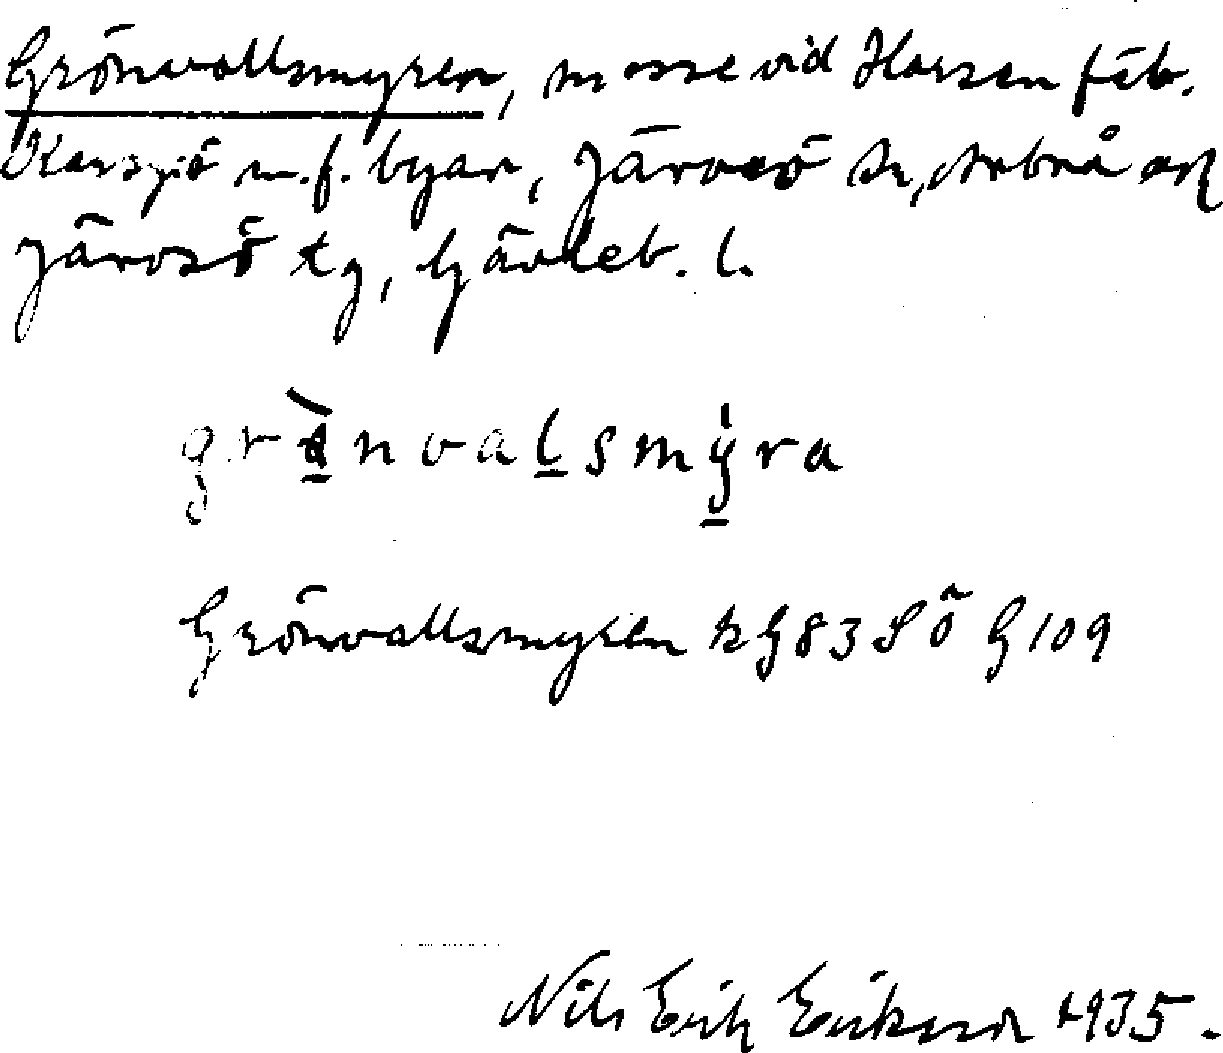 Grönvallsmyren, mosse vid Harsen fäb.
Karsjö m.fl. byar, Järvsö sn, Arbrå och
Järvsö tg, Gävleb. l.
grànvalsmýra
Grönvallsmyren k G83 SÖ G109
Nils Erik Eriksson 1935.